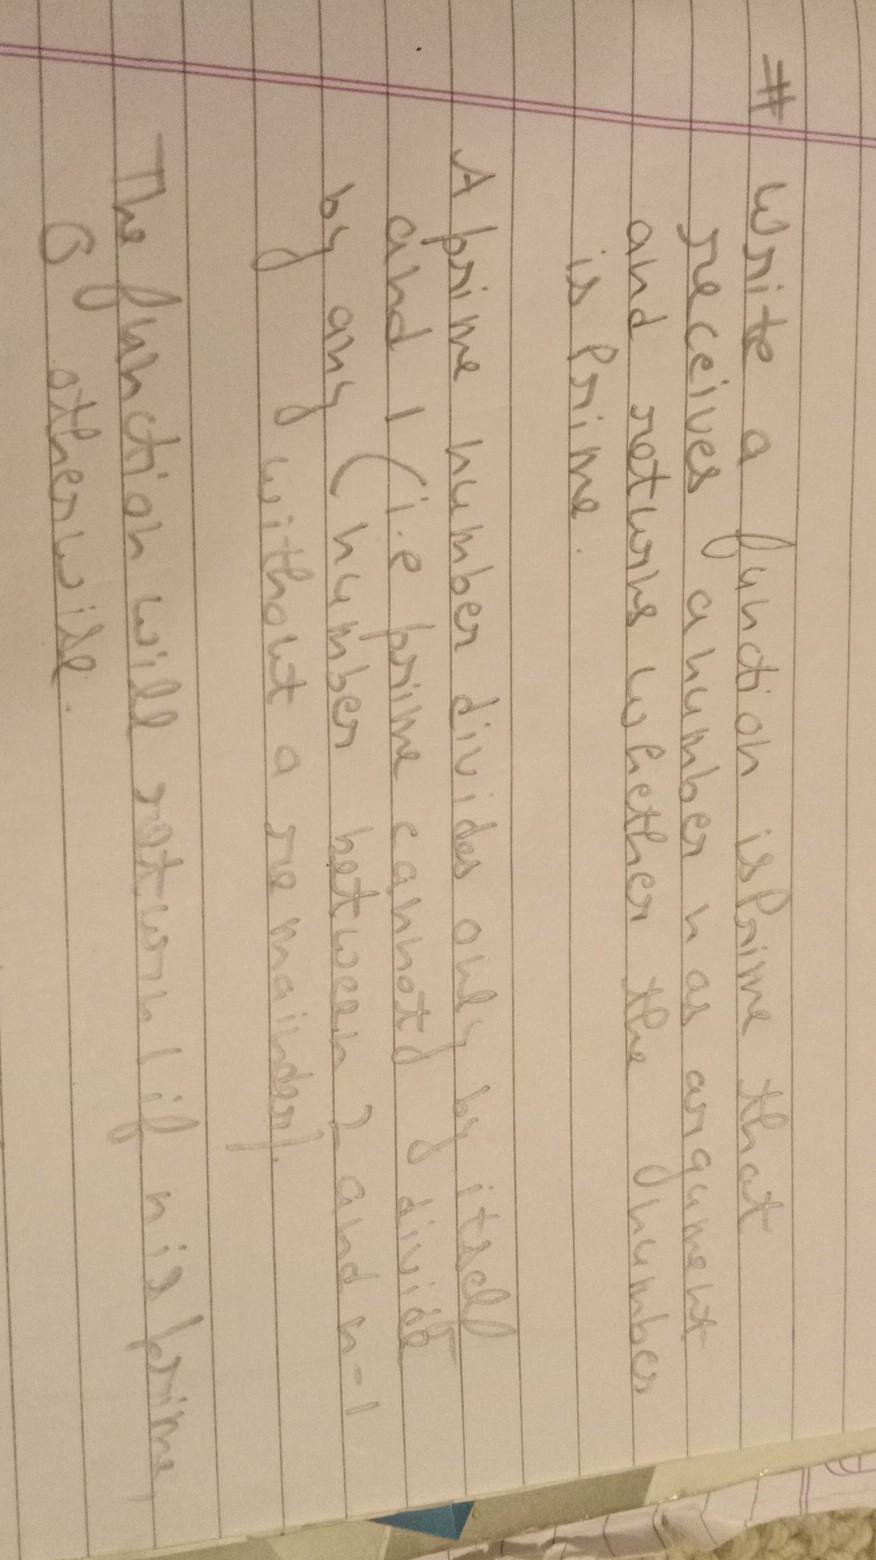 # Write a function isPrime that
receives a number n as argument
and returns whether the number
is Prime.
A prime number divides only by itself
and 1 (i.e prime cannot divide
by any (number between 2 and n-1
without a remainder).
The function will return 1 if n is prime,
0 otherwise.